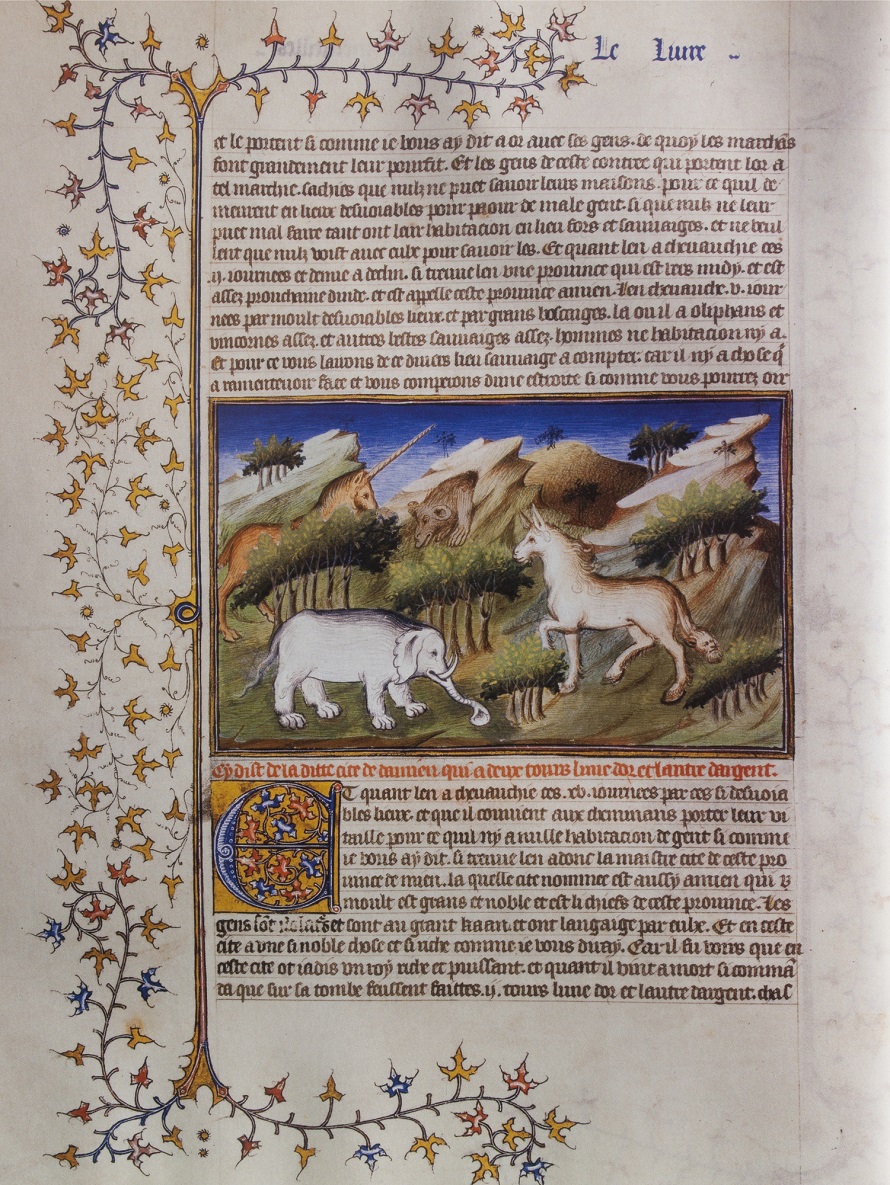 Le Liure
et le portent si comme ie vous ay dit a or auec ses gens. de quoy les marchãs
font grandement leur pourfit. Et les gens de ceste contree qui portent lor a
tel marchie. sachies que nulz ne puet sauoir leurs maisons. pour ce quil de
meurent en lieux desuoiables pour paour de male gent. si que nulz ne leur
puet mal faire tant ont leur habitacion en lieu fors et sauuaiges. et ne veul
lent que nulz voist auec eulx pour sauoir les. Et quant len a cheuauchie ces
.ij. iournees et demie a declin. si treuue len vne prouince qui est vers midy. et est
assez prouchaine dinde. et est appelle ceste prouince amien. Len cheuauche. v. iour
nees par moult desuoiables lieux. et par grans boscages. la ou il a oliphans et
vnicornes assez. et autres bestes sauuaiges assez. hommes ne habitacion ny a.
Et pour ce vous lairons de ce diuers lieu sauuaige a compter. car il ny a chose q̃
a ramenteuoir face et vous compterons dune estoire si comme vous pourrez oir
Cy dist de la ditte cite de damien qui a deux tours lune dor. et lautre dargent.
ET quant len a cheuauchie ces .xv. iournees par ces si desuoia
bles lieux. et que il conuient aux chemmans porter leur vi
taille pour ce quil ny a nulle habitacion de gent si comme
ie vous ay dit. si treuue len adonc la maistre cite de ceste pro
uince de mien. la quelle cite nommee est aussy amien qui
moult est grans et noble et est li chiefs de ceste prouince. Les
gens sõt et sont au grant kaan. et ont langaige par eulx. Et en ceste
cite a vne si noble chose et si riche comme ie vous diray. Car il fu voirs que en
ceste cite ot iadis vn roy riche et puissant. et quant il vint a mort si commã
da que sur sa tombe feussent faittes .ij. tours lune dor et lautre dargent. chas